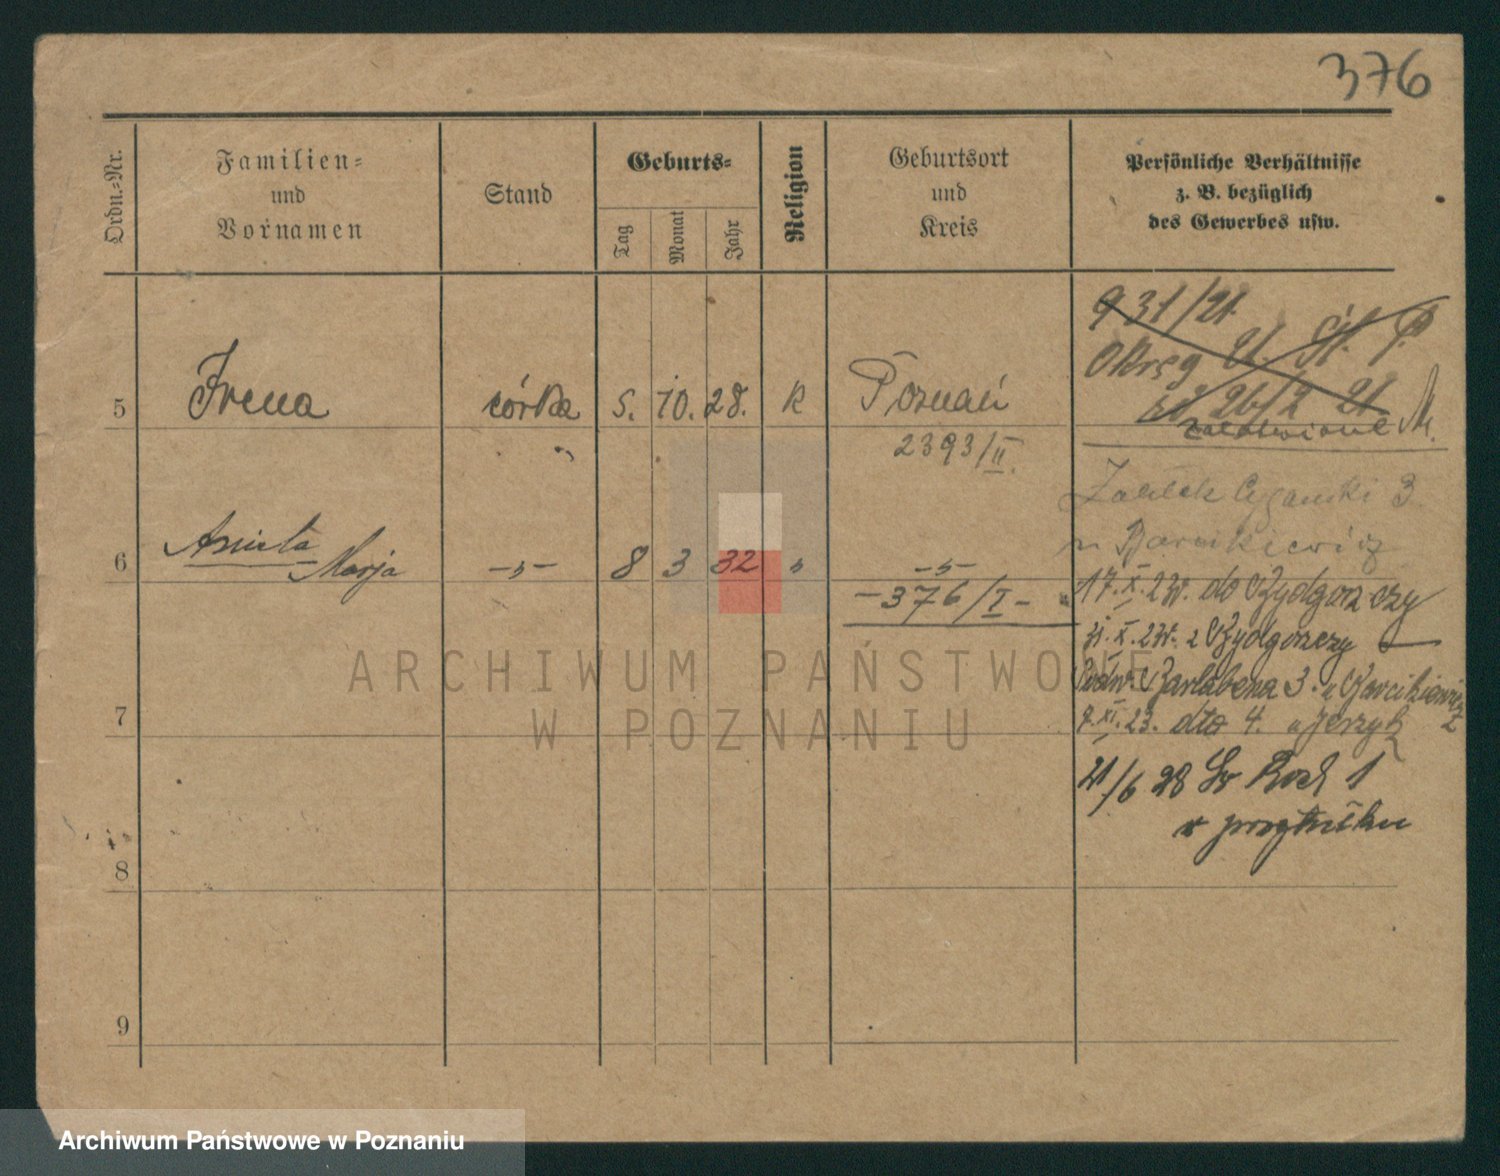 376
Ordn.-Nr.
Familien-
und
Vornamen
Stand
Geburts-
Tag
Monat
Jahr
Religion
Geburtsort
und
Kreis
Persönliche Verhältnisse
z. B. bezüglich
des Gewerbes usw.
931/21
Okręg 21. St. P.
26/2 21
załatwione M.
5 Irena córka 5. 10. 28. K Poznań
2393/II.
3
n Barcikiewicz
6 Aniela Marja -„- 8 3 32 „ -„-
-376/I-
17.X.23r. do Bydgoszczy
31.X.23r. z Bydgoszczy
Podw. Barlebena 3. u Barcikiewicz
9.XI.23. dto 4. u Jerzyk
7
21/6 28 Św Roch 1
w przytułku
8
9
ARCHIWUM PAŃSTWOWE
W POZNANIU
Archiwum Państwowe w Poznaniu